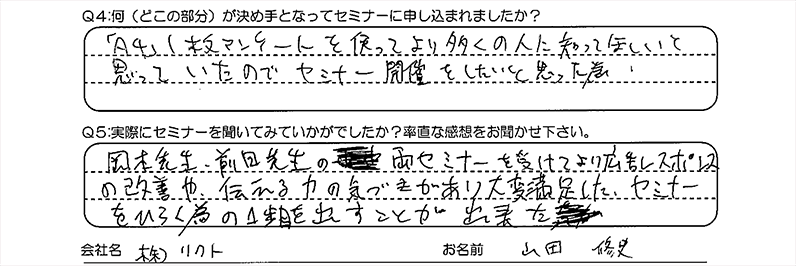 Q4:何（どこの部分）が決め手となってセミナーに申し込まれましたか？
「A4」1枚アンケートを使ってより多くの人に知ってほしいと
思っていたのでセミナー開催をしたいと思った為.
Q5:実際にセミナーを聞いてみていかがでしたか？率直な感想をお聞かせ下さい。
岡本先生、前田先生の両セミナーを受けてより広告レスポンス
の改善や、伝える力の気づきがあり大変満足した、セミナー
をひらく為の1歩を出すことが出来た
会社名 株）リクト お名前 山田 修史